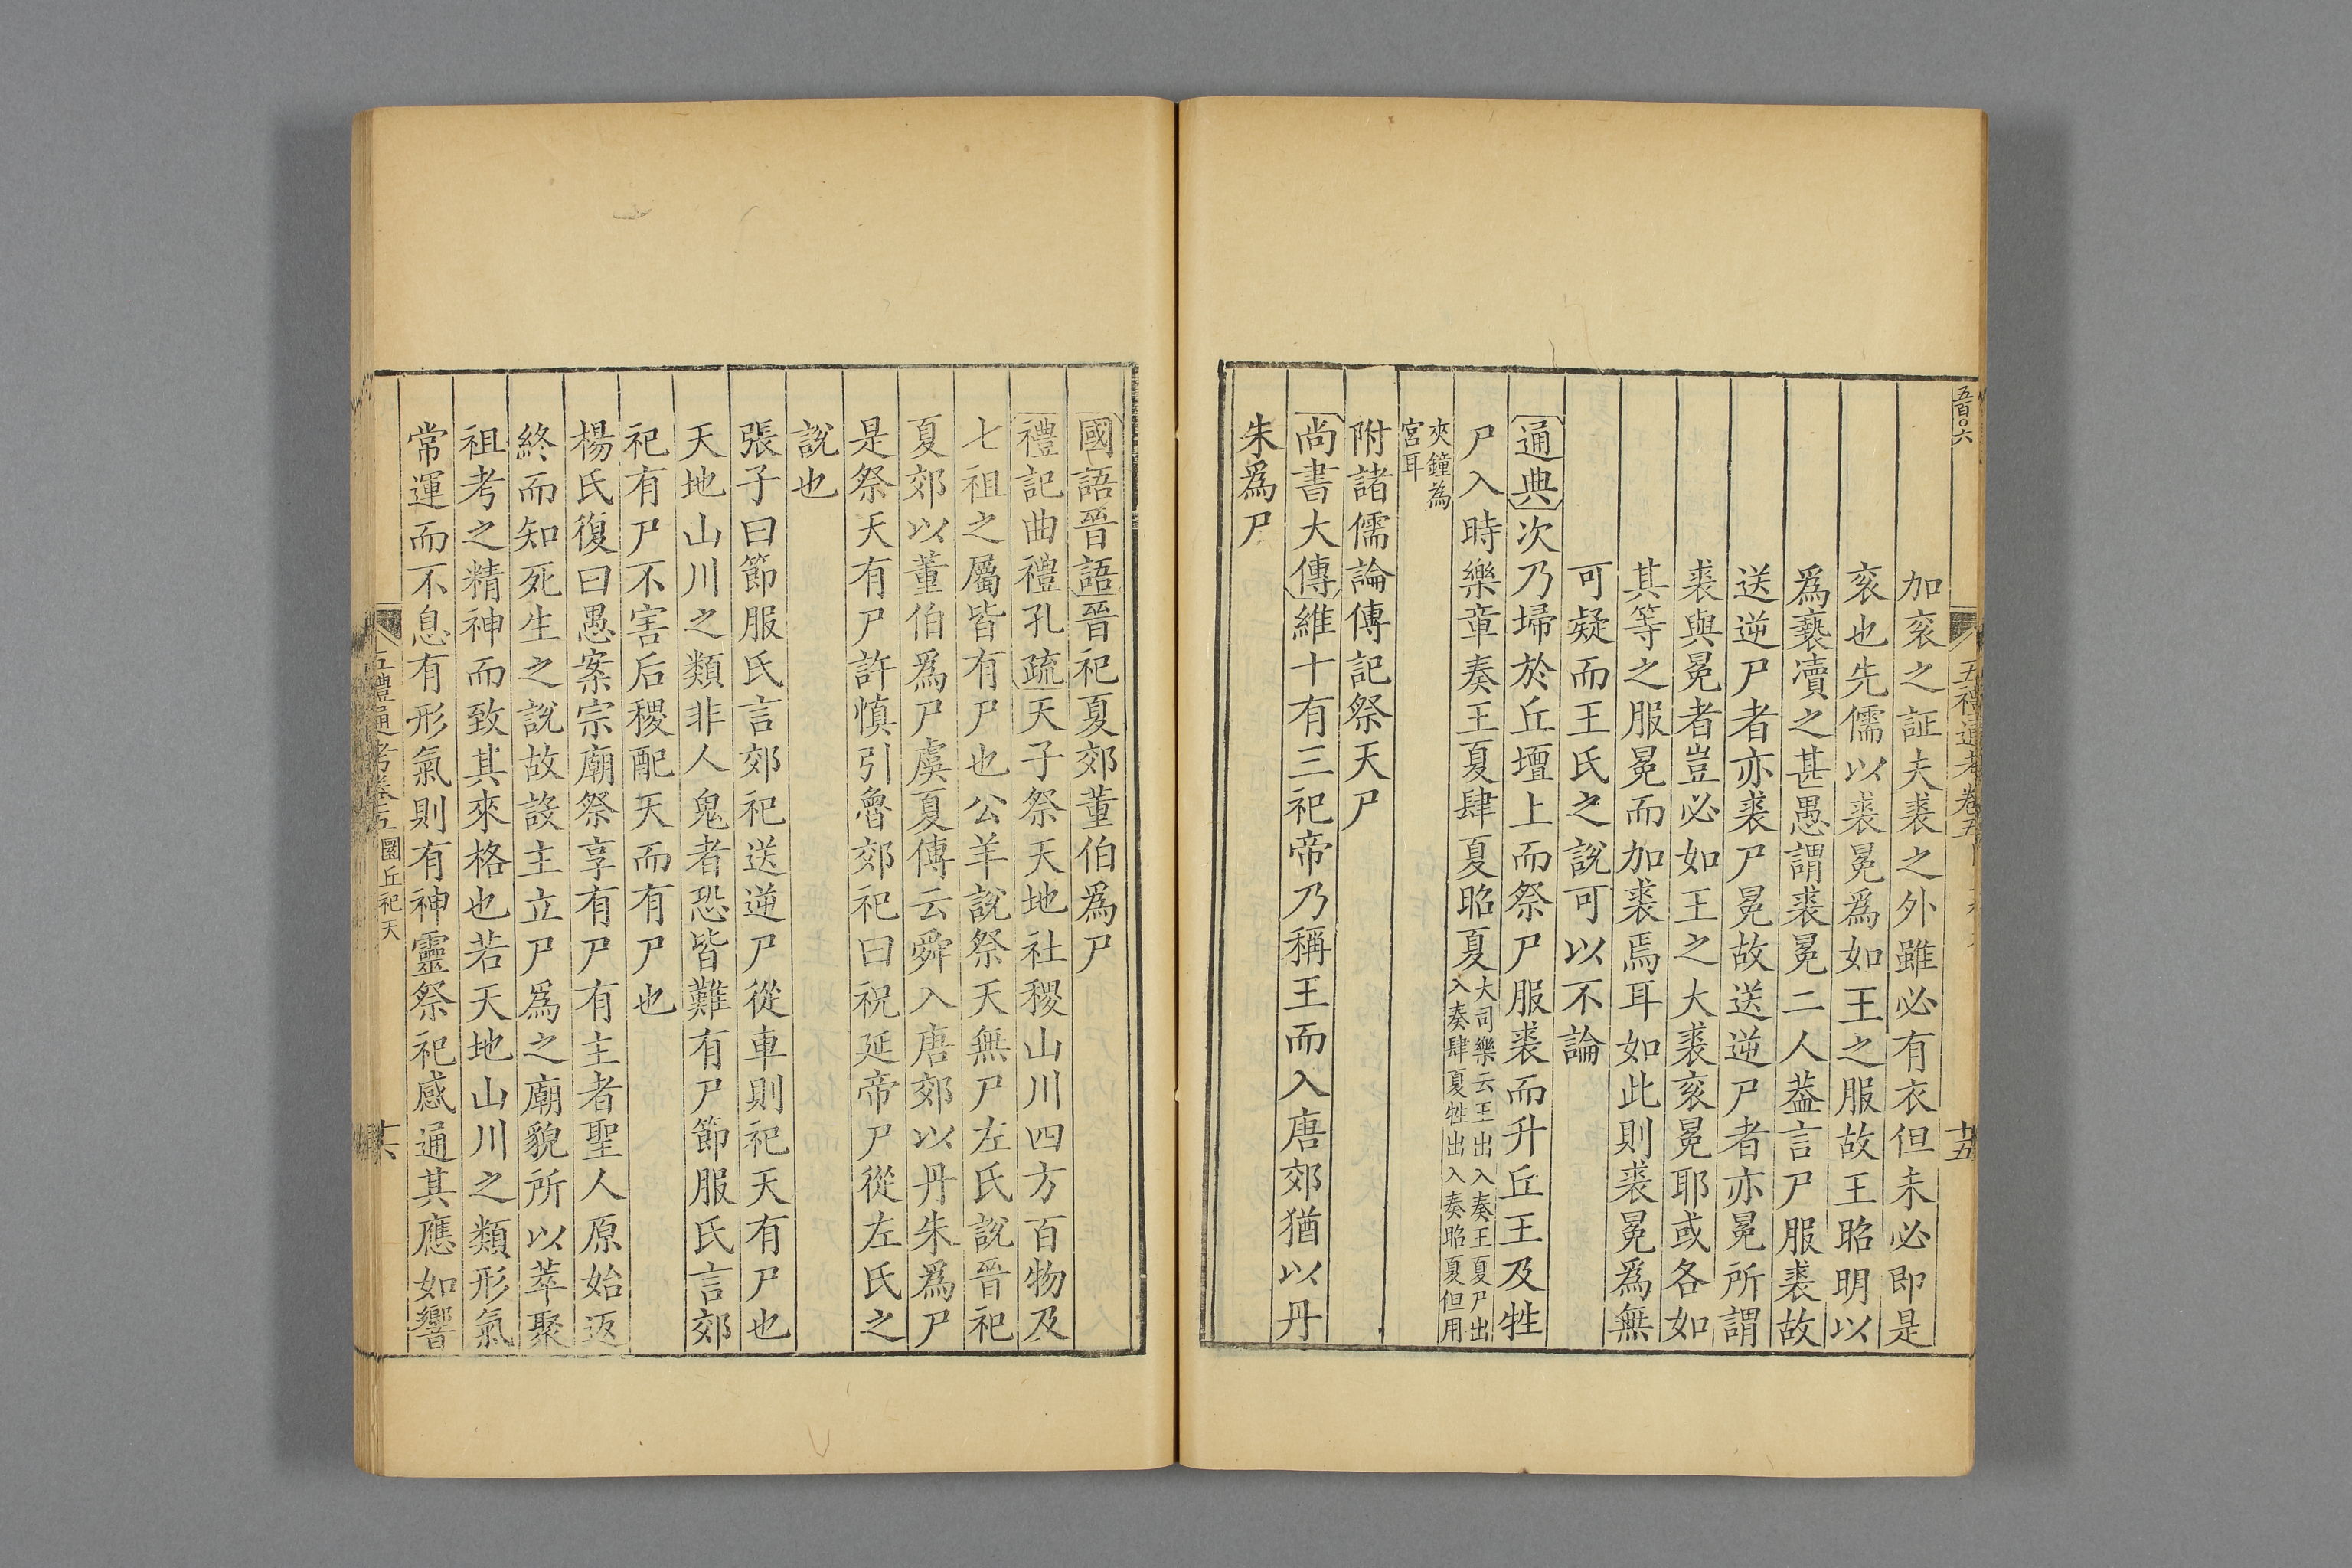 五百〇六
五禮通考卷五
十五
加衮之証夫裘之外雖必有衣但未必即是
衮也先儒以裘冕爲如王之服故王昭明以
爲褻瀆之甚愚謂裘冕二人葢言尸服裘故
送逆尸者亦裘尸冕故送逆尸者亦冕所謂
裘與冕者豈必如王之大裘衮冕耶或各如
其等之服冕而加裘焉耳如此則裘冕爲無
可疑而王氏之說可以不論
通典次乃埽於丘壇上而祭尸服裘而升丘王及牲
尸入時樂章奏王夏肆夏昭夏大司樂云王出入奏王夏尸出
入奏肆夏牲出入奏昭夏但用
夾鐘為
宮耳
附諸儒論傳記祭天尸
尚書大傳維十有三祀帝乃稱王而入唐郊猶以丹
朱爲尸
國語晉語晉祀夏郊董伯爲尸
禮記曲禮孔疏天子祭天地社稷山川四方百物及
七祖之屬皆有尸也公羊說祭天無尸左氏說晉祀
夏郊以董伯爲尸虞夏傳云舜入唐郊以丹朱爲尸
是祭天有尸許慎引魯郊祀曰祝延帝尸從左氏之
說也
張子曰節服氏言郊祀送逆尸從車則祀天有尸也
天地山川之類非人鬼者恐皆難有尸節服氏言郊
祀有尸不害后稷配天而有尸也
楊氏復曰愚案宗廟祭享有尸有主者聖人原始返
終而知死生之說故設主立尸爲之廟貌所以萃聚
祖考之精神而致其來格也若天地山川之類形氣
常運而不息有形氣則有神靈祭祀感通其應如響
五禮通考卷五 圜丘祀天
十六